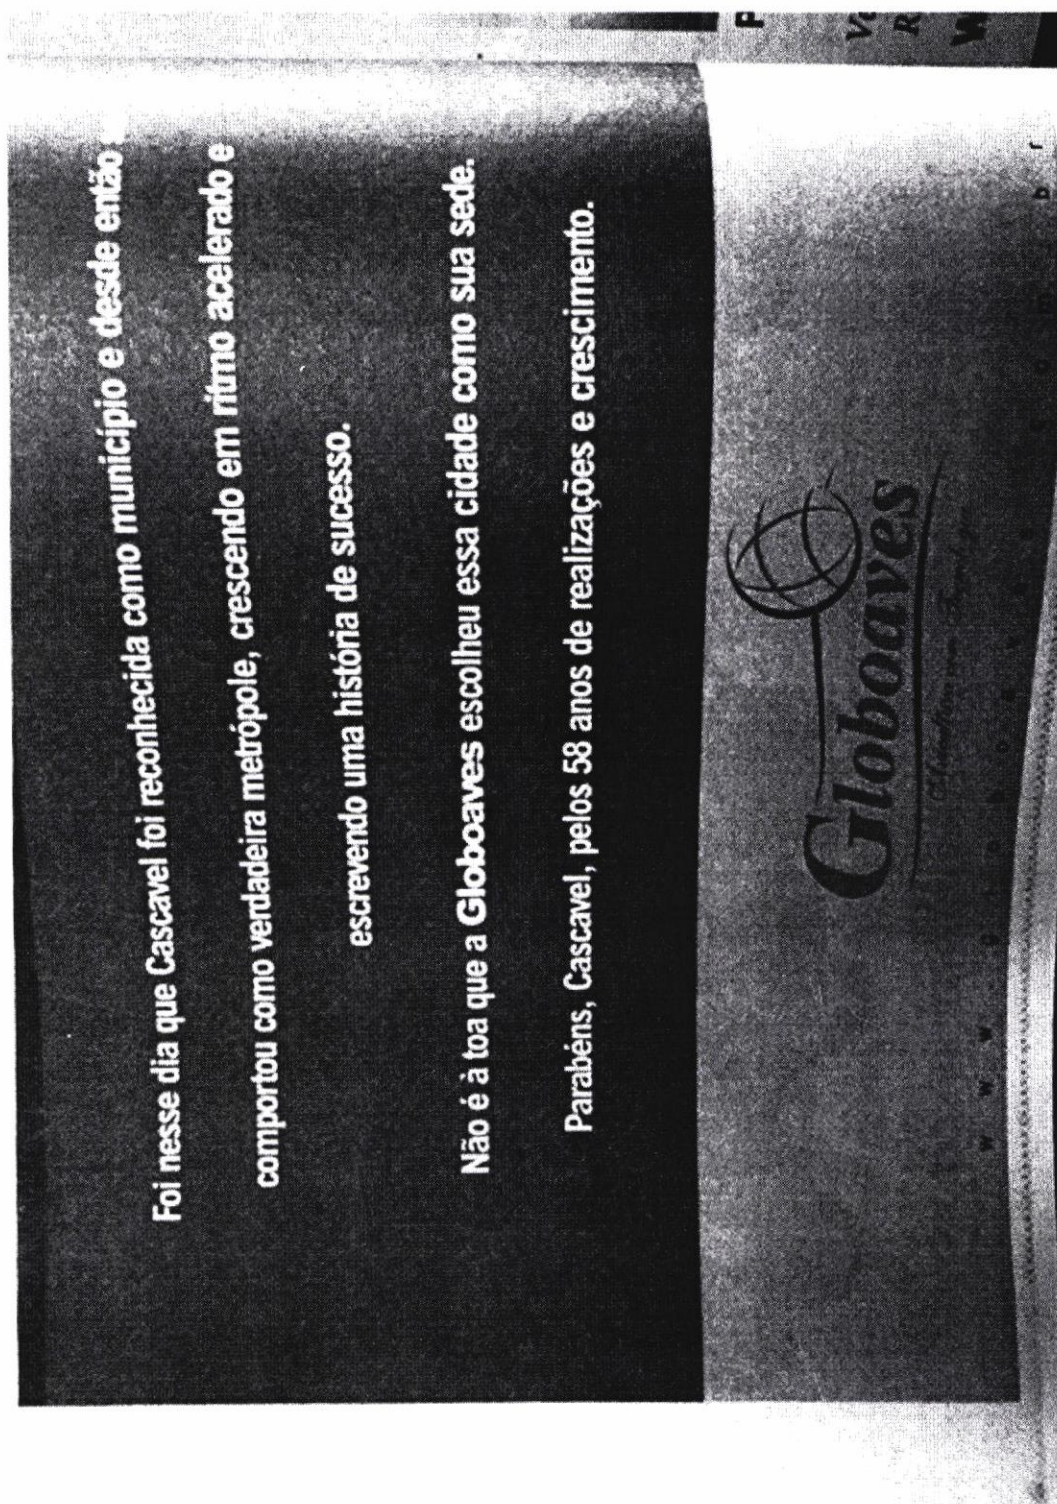 Foi nesse dia que Cascavel foi reconhecida como município e desde então
comportou como verdadeira metrópole, crescendo em rítmo acelerado e
escrevendo uma história de sucesso.
Não é à toa que a Globoaves escolheu essa cidade como sua sede.
Parabéns, Cascavel, pelos 58 anos de realizações e crescimento.
Globoaves